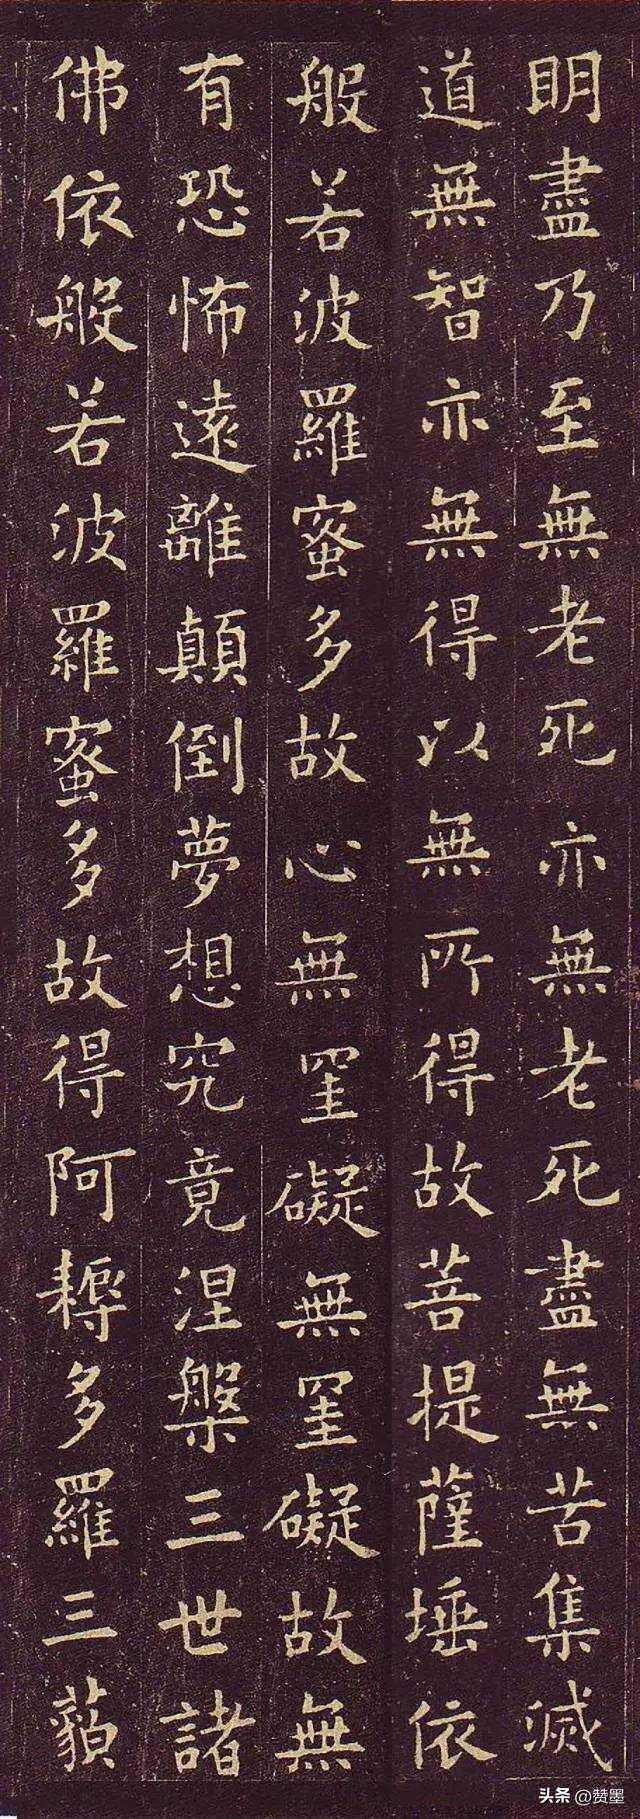 明盡乃至無老死亦無老死盡無苦集滅
道無智亦無得以無所得故菩提薩埵依
般若波羅蜜多故心無罣礙無罣礙故無
有恐怖遠離顛倒夢想究竟涅槃三世諸
佛依般若波羅蜜多故得阿耨多羅三藐
头条 @赞墨